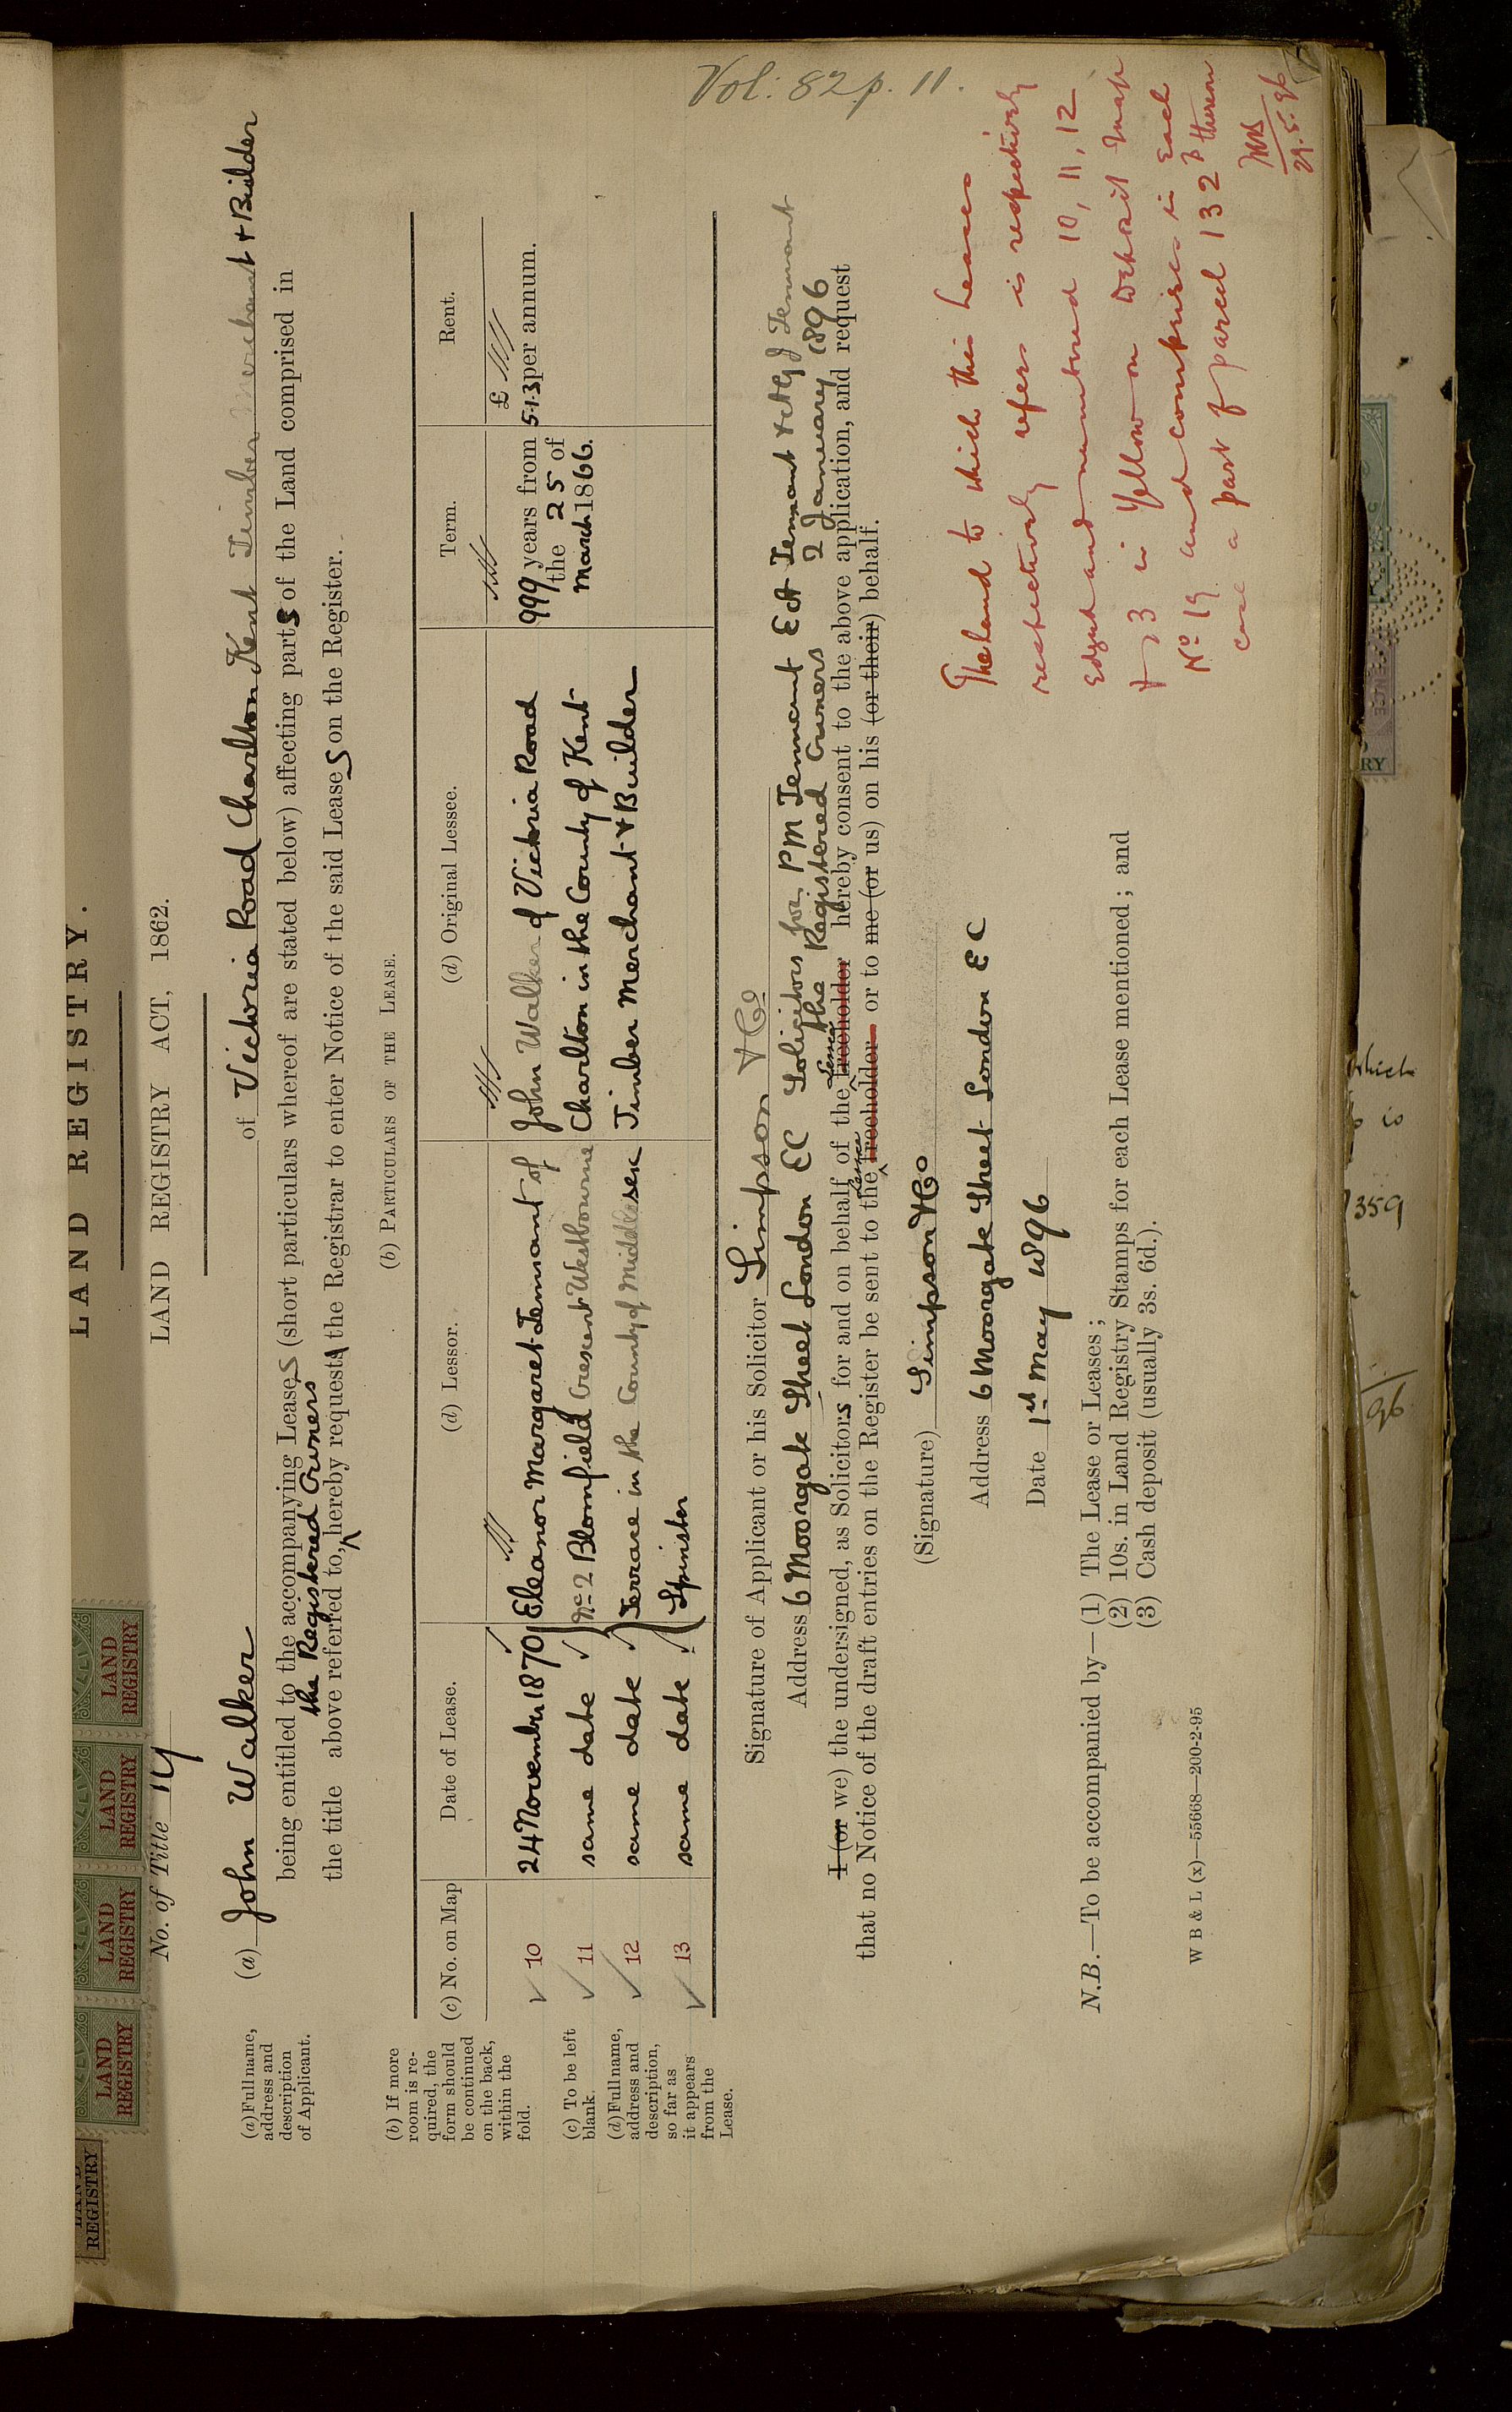 LAND REGISTRY.
LAND REGISTRY ACT, 1862.
LAND REGISTRY
LAND REGISTRY
LAND REGISTRY
LAND REGISTRY
LAND REGISTRY
No. of Title 19
Vol: 82 p. 11.
(a) Full name,
address and
description
of Applicant.
(a) John Walker of Victoria Road Charlton Kent Timber Merchant & Builder
being entitled to the accompanying Leases (short particulars whereof are stated below) affecting parts of the Land comprised in
the Registered Owners
the title above referred to, hereby requests the Registrar to enter Notice of the said Leases on the Register.
(b) If more
room is re-
quired, the
form should
be continued
on the back,
within the
fold.
(c) To be left
blank.
(d) Full name,
address and
description,
so far as
it appears
from the
Lease.
(b) PARTICULARS OF THE LEASE.
(c) No. on Map Date of Lease. (d) Lessor. (d) Original Lessee. Term. Rent.
10 24 November 1870 Eleanor Margaret Tennant of John Walker of Victoria Road 999 years from £ 5.1.3 per annum.
11 same date No 2 Blomfield Crescent Westbourne Charlton in the County of Kent the 25 of
12 same date Terrace in the County of Middlesex Timber Merchant & Builder March 1866.
13 same date Spinster
Signature of Applicant or his Solicitor Simpson & Co
Address 6 Moorgate Street London EC Solicitors for PM Tennant EA Tennant & AGJ Tennant
the Registered Owners 2 January 1896
I (or we) the undersigned, as Solicitors for and on behalf of the Lessee freeholder hereby consent to the above application, and request
that no Notice of the draft entries on the Register be sent to the Lessee freeholder or to me (or us) on his (or their) behalf.
(Signature) Simpson & Co
Address 6 Moorgate Street London EC
Date 1st May 1896
N.B.—To be accompanied by—(1) The Lease or Leases;
(2) 10s. in Land Registry Stamps for each Lease mentioned; and
(3) Cash deposit (usually 3s. 6d.).
W B & L (x)—55668—200-2-95
The land to which this leases
respectively refers is respectively
edged and numbered 10, 11, 12
& 13 in Yellow on Deposit Map
No 19 and comprises in each
case a part of parcel 132 B thereon
29.5.96
which
is
359
96